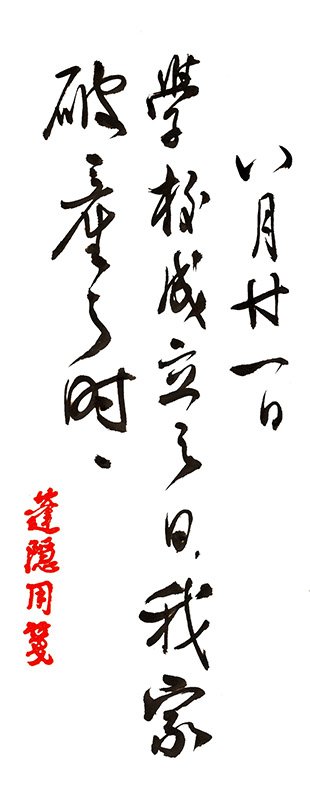 八月廿一日
學校成立之日，我家
破產之時。
蓬隱用箋